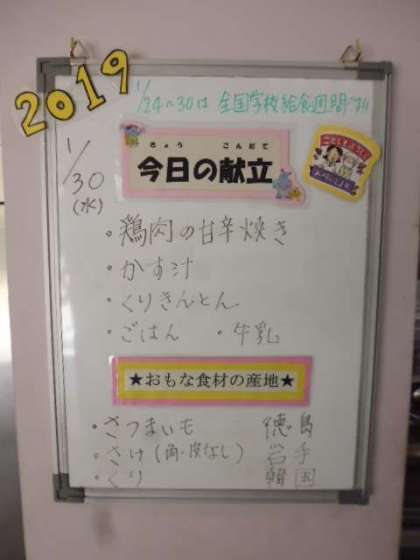 2019
1/24~30は 全国学校給食週間です!!
1/30
(水)
きょう こんだて
今日の献立
・鶏肉の甘辛焼き
・かす汁
・くりきんとん
・ごはん ・牛乳
★おもな食材の産地★
・さつまいも 徳島
・さけ(角・皮なし) 岩手
・くり 韓国